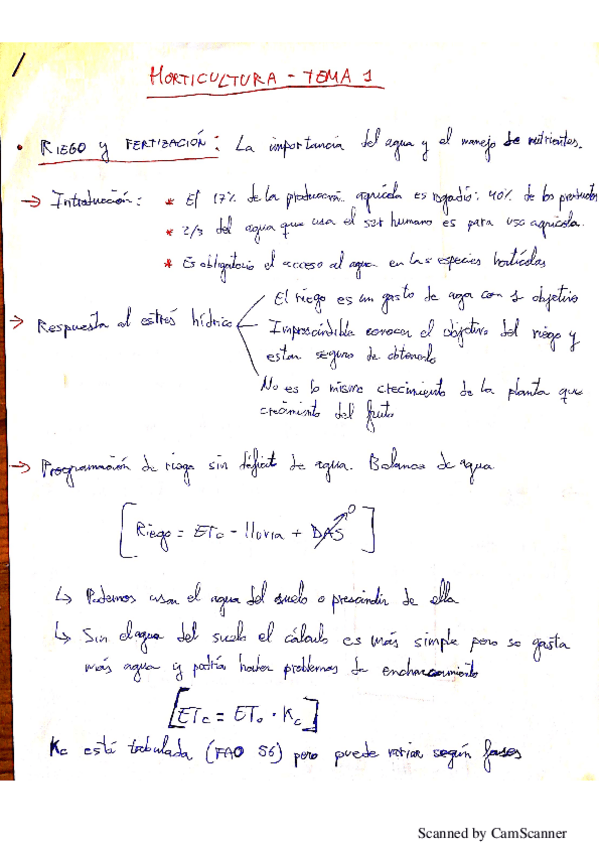 HORTICULTURA - TEMA 1
• RIEGO y FERTIZACIÓN: La importancia del agua y el manejo de nutrientes.
→ Introducción: * El 17% de la producción agrícola es regadío: 40% de los productos
* 2/3 del agua que usa el ser humano es para uso agrícola.
* Es obligatorio el acceso al agua en las especies hortícolas
El riego es un gasto de agua con 1 objetivo
→ Respuesta al estrés hídrico
Imprescindible conocer el objetivo del riego y
estar seguro de obtenerlo
No es lo mismo crecimiento de la planta que
crecimiento del fruto
→ Programación de riego sin déficit de agua. Balance de agua
[Riego = ETc - lluvia + DAS 0]
↳ Podemos usar el agua del suelo o prescindir de ella
↳ Sin el agua del suelo el cálculo es más simple pero se gasta
más agua y podría haber problemas de encharcamiento
[ETc = ETo · Kc]
Kc está tabulada (FAO 56) pero puede variar según fases
Scanned by CamScanner